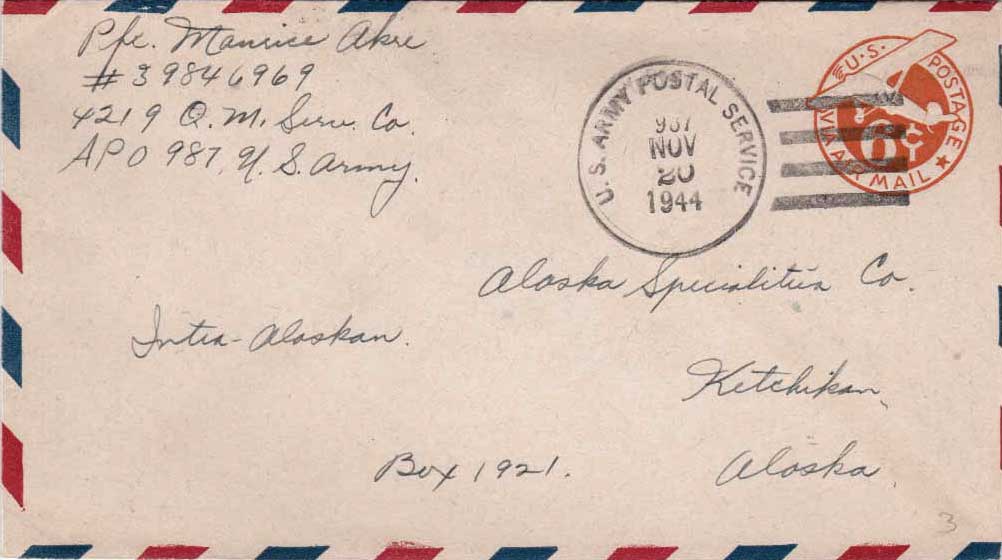 Pfc. Maurice Akre
# 39846969
4219 Q.M. Serv. Co.
APO 987, U.S. Army.
U.S. ARMY POSTAL SERVICE
987
NOV
20
1944
U.S. POSTAGE
6¢
VIA AIR MAIL
Alaska Specialities Co.
Intra-Alaskan.
Ketchikan,
Box 1921.
Alaska
3